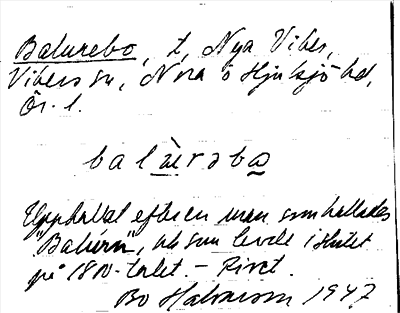 Balurebo, t, Nya Viker,
Vikers sn, Nora o Hjulsjö hd,
Ör. l.
balùrəbo
Uppkallat efter en man som kallades
"Baluren", och som levde i slutet
på 1800-talet. – Rivet.
Bo 1947